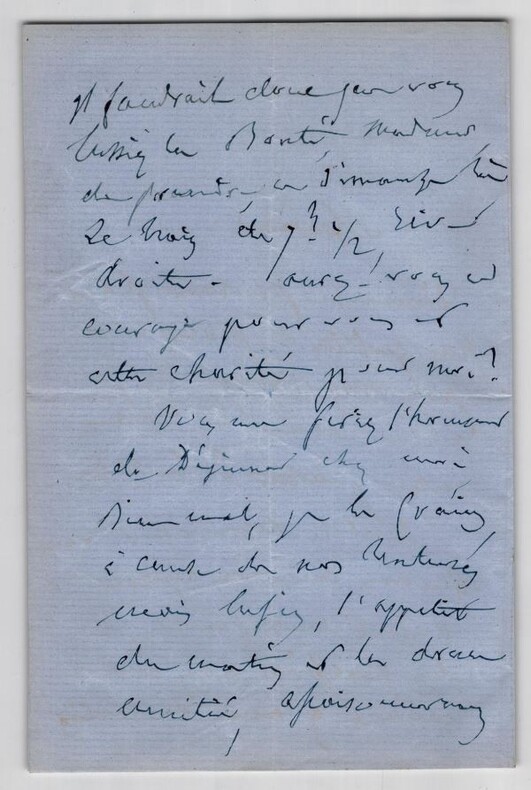 Il faudrait donc que vous
eussiez la Bonté, Madame,
de prendre ce Dimanche là
Le train de 7h 1/2, Rive
droite - aurez-vous ce
courage pour vous et
cette charité pour moi?
Vous me ferez l'honneur
de Déjeuner chez moi
Bien mal, je le crains,
à cause de nos
mais enfin, l'appétit
du matin et la douce
amitié,